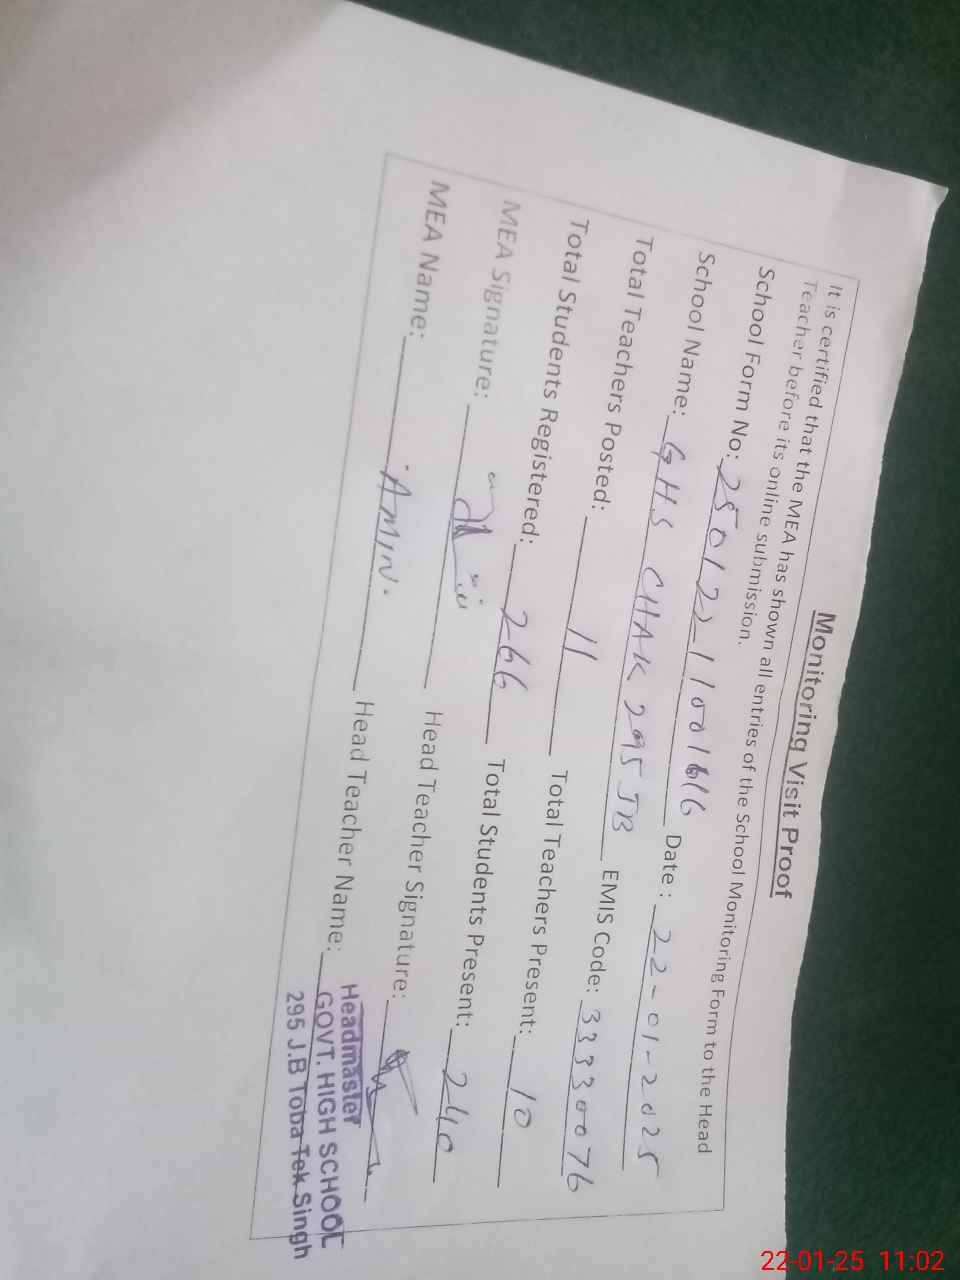 Monitoring Visit Proof
It is certified that the MEA has shown all entries of the School Monitoring Form to the Head
Teacher before its online submission.
School Form No: 25012211001616 Date : 22-01-2025
School Name: GHS CHAK 295 JB EMIS Code: 33330076
Total Teachers Posted: 11 Total Teachers Present: 10
Total Students Registered: 266 Total Students Present: 240
MEA Signature: Head Teacher Signature:
MEA Name: AMIN. Head Teacher Name:
Headmaster
GOVT. HIGH SCHOOL
295 J.B Toba Tek Singh
22-01-25 11:02